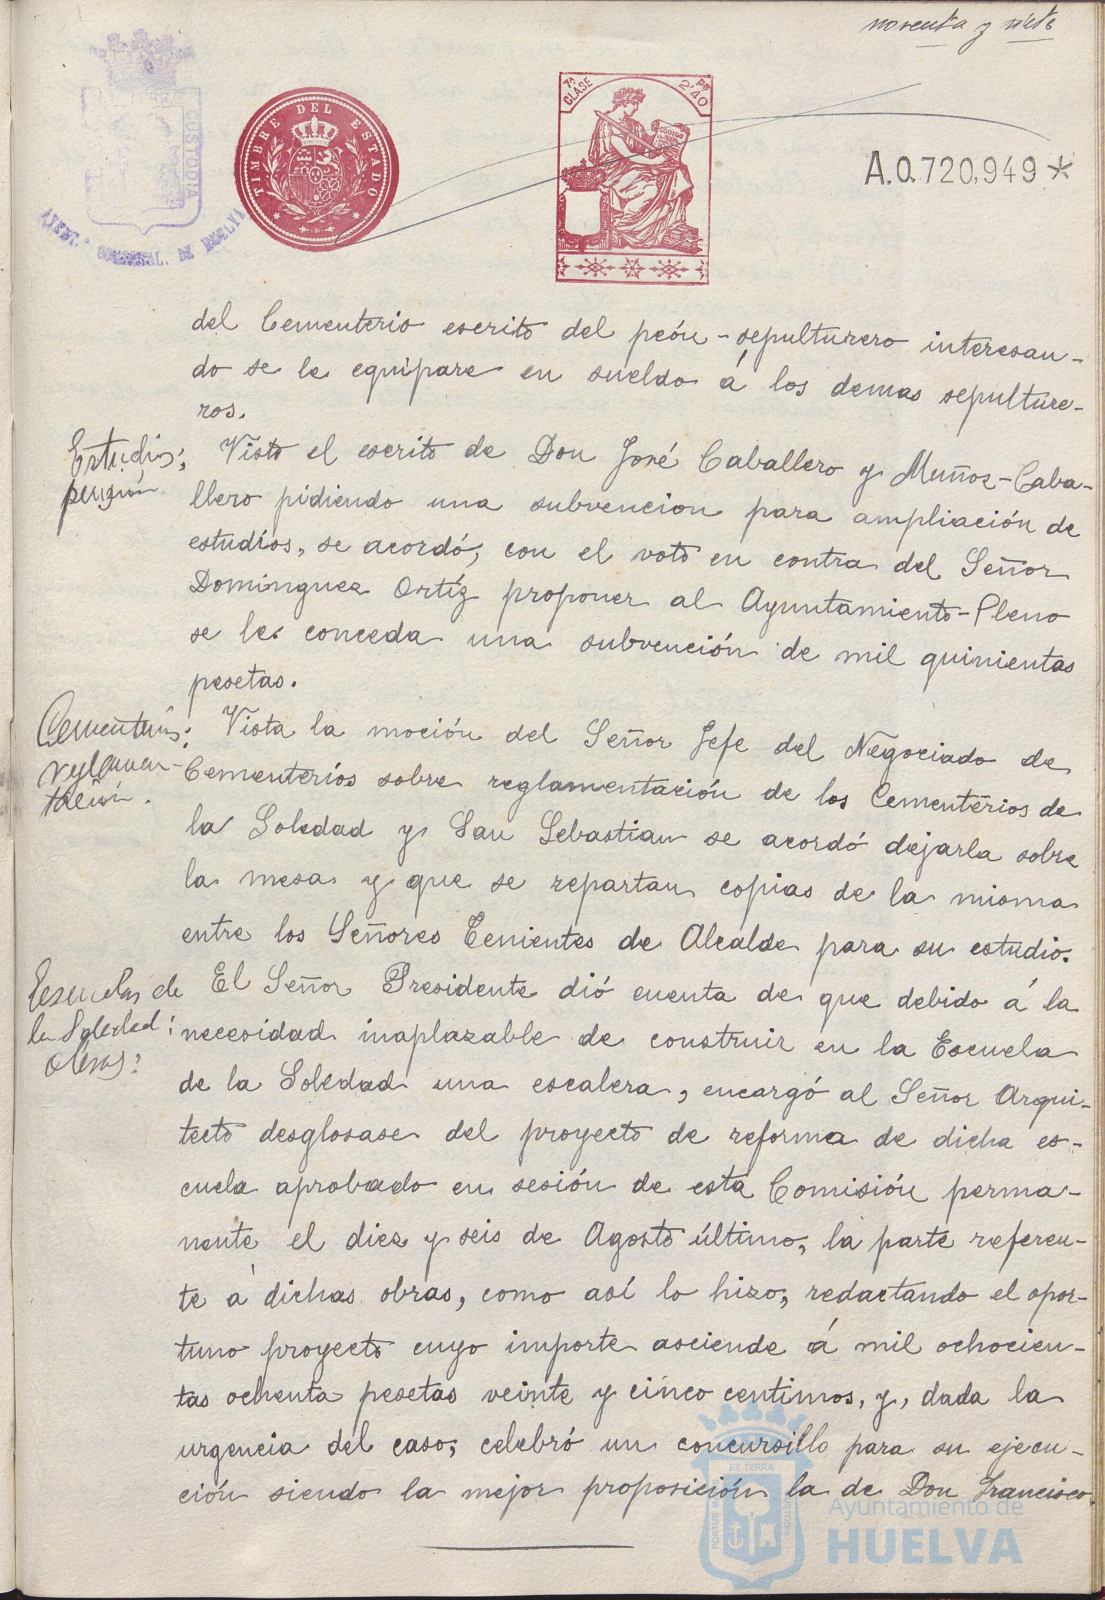 noventa y siete
TIMBRE DEL ESTADO
7ª CLASE
2'40
CÓDIGO
A.0.720,949*
CUSTODIA
AYUNT.º CONSTNAL. DE HUELVA
del Cementerio escrito del peón-sepulturero interesan-
do se le equipare en sueldo á los demas sepulture-
ros.
Estudios;
pensión
Visto el escrito de Don José Caballero y Muñoz-Caba-
llero pidiendo una subvencion para ampliación de
estudios, se acordó, con el voto en contra del Señor
Dominguez Ortíz proponer al Ayuntamiento-Pleno
se le conceda una subvención de mil quinientas
pesetas.
Cementerios;
reglamen-
tación.
Vista la moción del Señor Jefe del Negociado de
Cementerios sobre reglamentación de los Cementerios de
la Soledad y San Sebastian se acordó dejarla sobre
la mesa y que se repartan copias de la misma
entre los Señores Tenientes de Alcalde para su estudio.
Escuelas de
la Soledad;
obras:
El Señor Presidente dió cuenta de que debido á la
necesidad inaplazable de construir en la Escuela
de la Soledad una escalera, encargó al Señor Arqui-
tecto desglosase del proyecto de reforma de dicha es-
cuela aprobado en sesión de esta Comisión perma-
nente el diez y seis de Agosto último, la parte referen-
te á dichas obras, como así lo hizo, redactando el opor-
tuno proyecto cuyo importe asciende á mil ochocien-
tas ochenta pesetas veinte y cinco centimos, y, dada la
urgencia del caso, celebró un concursillo para su ejecu-
ción siendo la mejor proposición la de Don Francisco
Ayuntamiento de
HUELVA